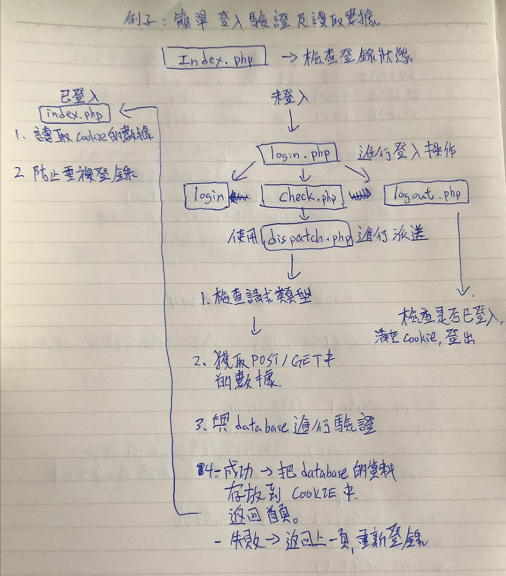 例子：簡單登入驗證及讀取數據
Index.php → 檢查登錄狀態
已登入
index.php
1. 讀取 cookie 的數據
2 防止重複登錄
未登入
login.php 進行登入操作
login check.php logout.php
使用 dispatch.php 進行派送
1. 檢查請求類型
檢查是否已登入,
清空 cookie, 登出
2. 獲取 POST/GET 中
的數據.
3. 與 database 進行驗證
4 - 成功 → 把 database 的資料
存放到 COOKIE 中
返回首頁。
- 失敗 → 返回上一頁, 重新登錄